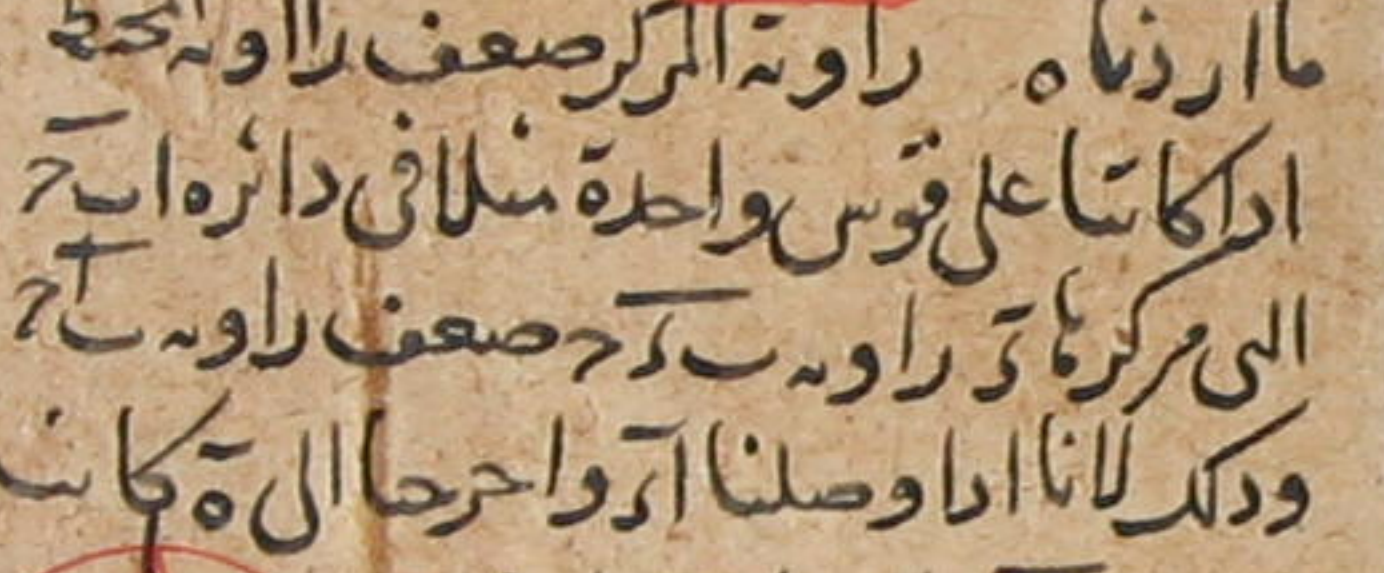 ما اردناه زاوية المركز ضعف زاوية المحيط
اذا كانتا على قوس واحدة مثلا فى دائرة ا ب ح
التى مركزها ء زاوية ب ء ح ضعف زاوية ب ا ح
وذلك لانا اذا وصلنا ا ء واخرجنا الى ه كانت